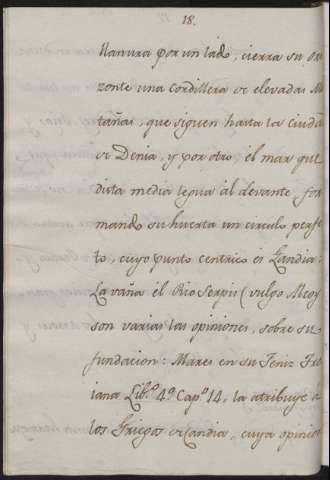 18.
llanura por un lado, cierra su ori
zonte una cordillera de elevadas Mo
tañas, que siguen hasta la Ciuda
de Denia, y por otro, el mar que
dista media legua àl devante for
mando su huerta un circulo perfe
to, cuyo punto centrico es Gandia:
La vaña èl Rio Serpis (vulgo Alcoy
son varias las opiniones, sobre su
fundacion: Mares en su Fenix Tro
iana Lib.º 4º Capº 14, la atribuye à
los Griegos de Candia, cuya opinion